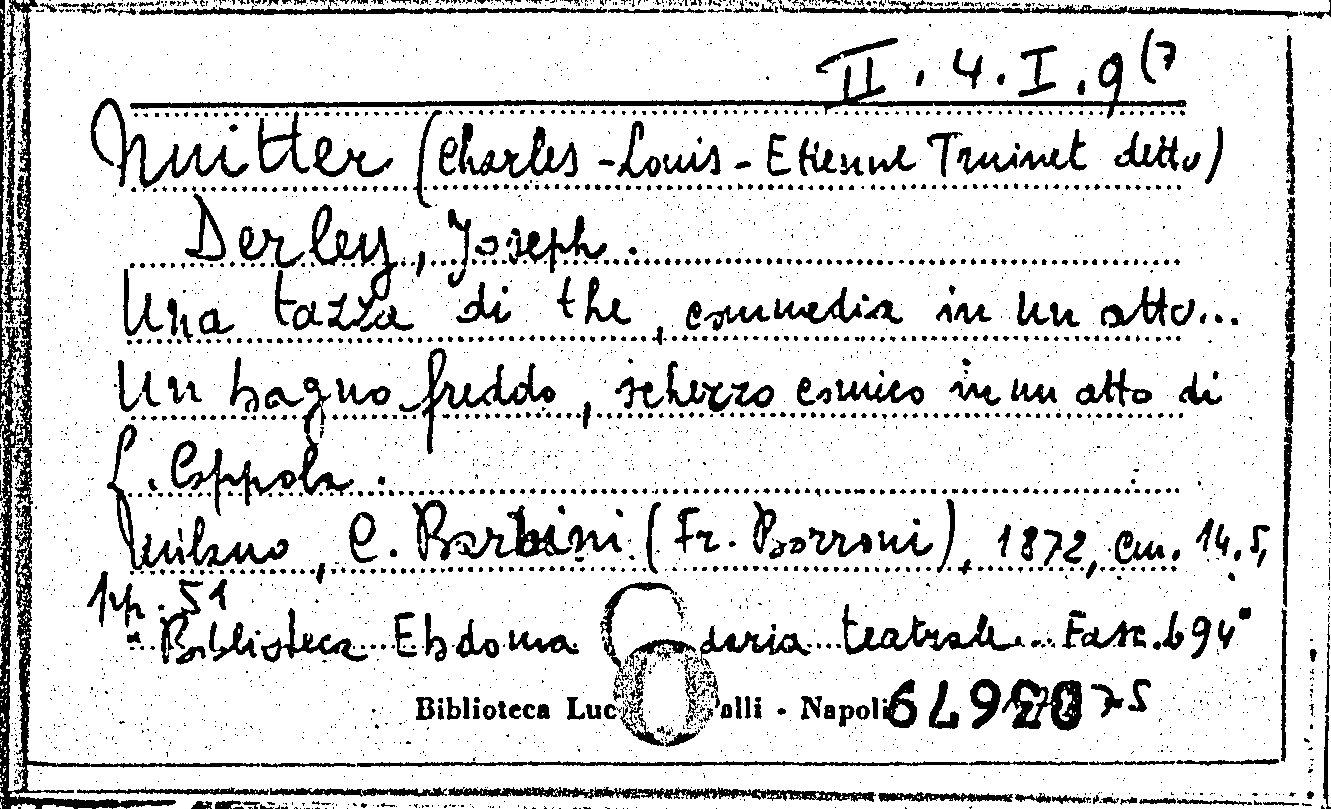 II . 4 . I . 9 (7
Nuitter (Charles - Louis - Etienne Truinet detto)
Derley, Joseph .
Una tazza di the , commedia in un atto...
Un bagno freddo , scherzo comico in un atto di
L. Coppola .
Milano , C. Barbini (Fr. Borroni) , 1872, cm. 14.5,
pp. 51
"Biblioteca Ebdoma daria teatrale... Fasc. 694"
Biblioteca Luc alli - Napoli